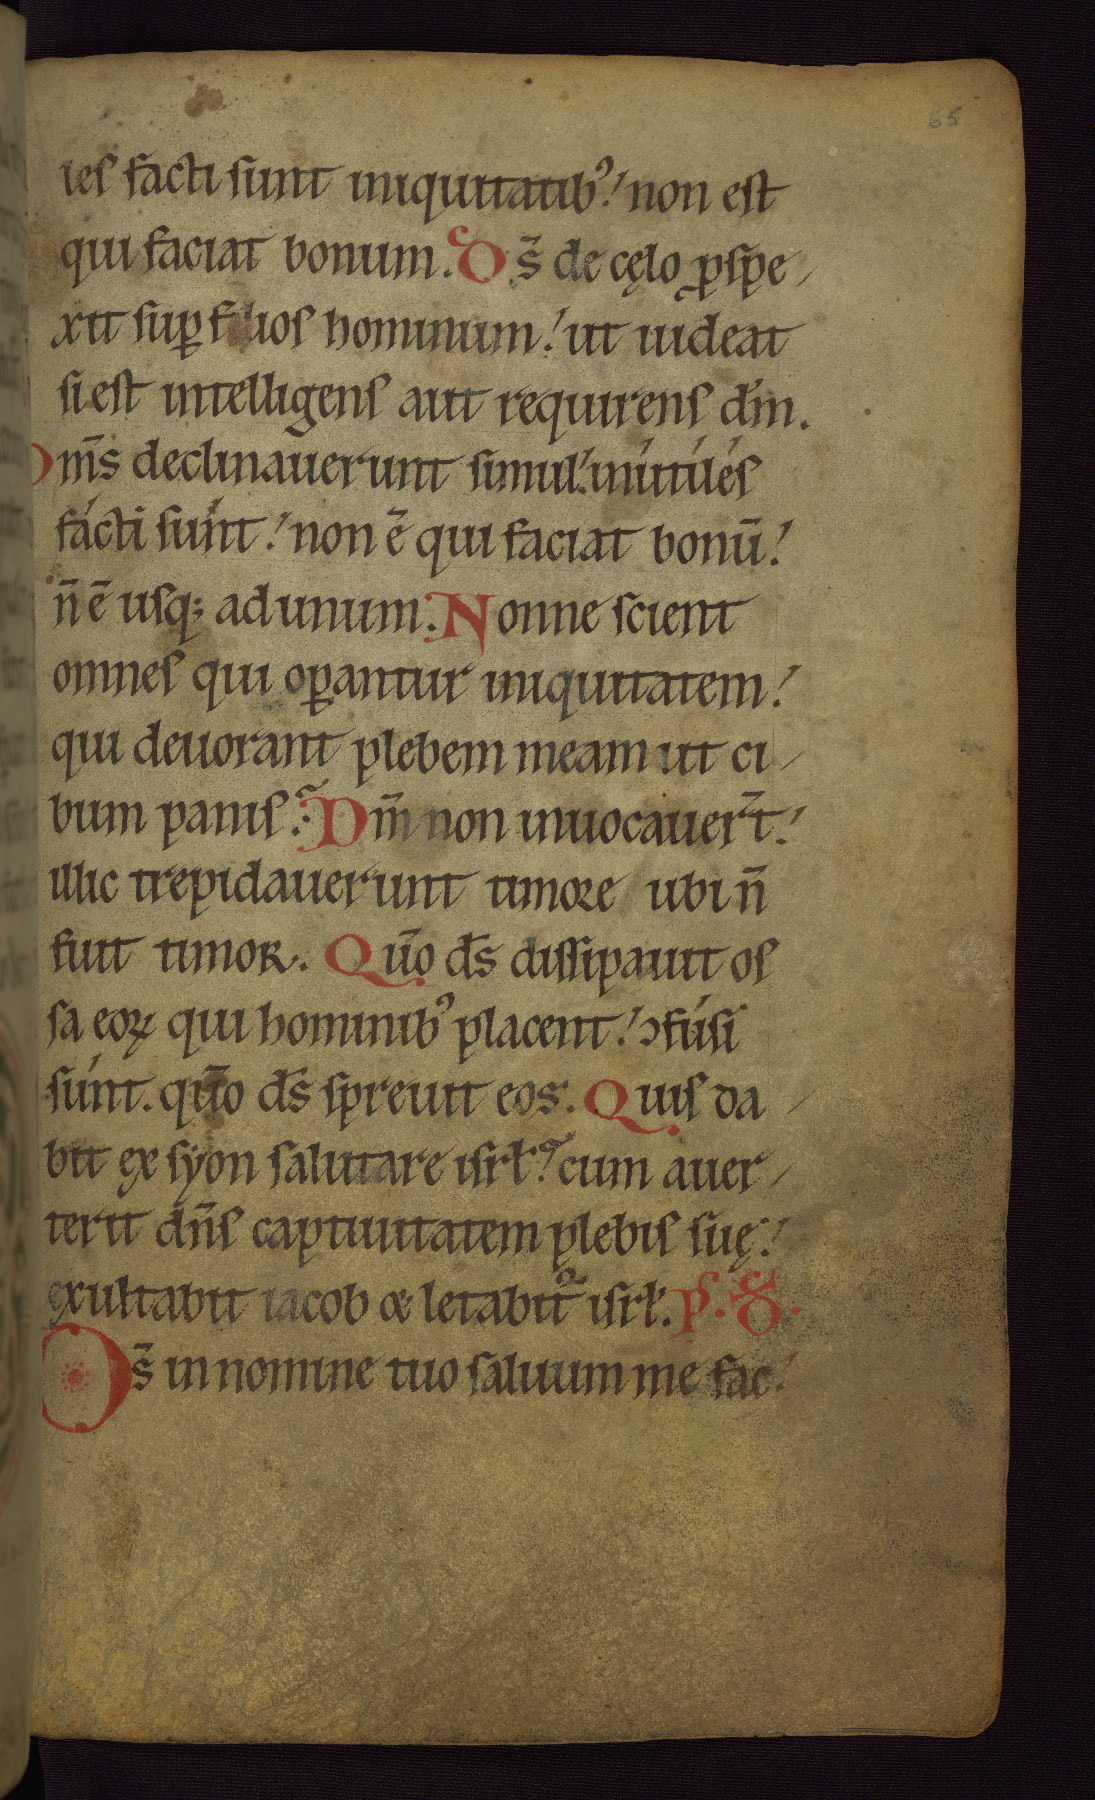 65
ieſ facti ſunt iniquitatibꝰ! non eſt
qui faciat bonum. Ds̄ de cęlo ꝓſpe
xit ſuꝑ filioſ hominum! ut uideat
ſi eſt intelligenſ aut requirenſ dm̄.
Om̄s declinauerunt ſimul! inútiĺeſ
fácti ſúnt! non ē qui faciat bonū!
n̄ ē uſq; ad unum. Nonne ſcient
omneſ qui oꝑantur iniquitatem!
qui deuorant plebem meam ut ci
bum paniſ? Dm̄ non inuocauer̄t!
illic trepidauerunt timore ubi n̄
fuit timor. Qūo ds̄ diſſipauit oſ
ſa eoꝝ qui hominibꝰ placent! ↄfúſi
ſúnt. qūo ds̄ ſpreuit eos. Quiſ da
bit ex ſyon ſalutare iſrł? cum auer
terit dn̄ſ captiuitatem plebiſ ſuę!
exultabit iacob & letabit᷑ iſrł. Pſ. D.
Ds̄ in nomine tuo ſaluum me fac!